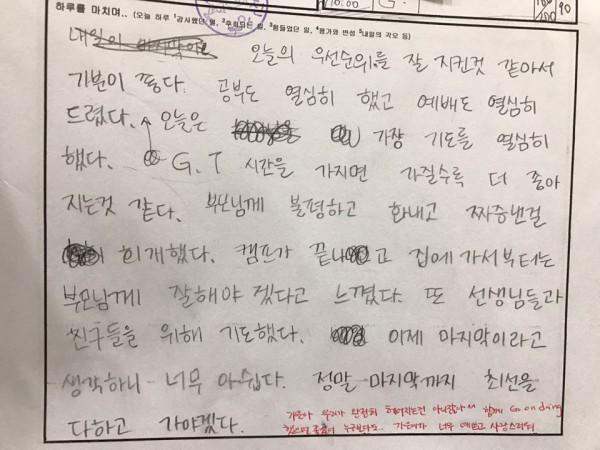 하루를 마치며.. (오늘 하루 ¹감사했던 일, ²후회되는 일, ³힘들었던 일, ⁴평가와 반성 ⁵내일의 각오 등)
오늘의 우선순위를 잘 지킨것 같아서
기분이 좋다. 공부도 열심히 했고 예배도 열심히
드렸다. 오늘은 가장 기도를 열심히
했다. G.T 시간을 가지면 가질수록 더 좋아
지는것 같다. 부모님께 불평하고 화내고 짜증낸걸
회개했다. 캠프가 끝나고 집에 가서부터는
부모님께 잘해야 겠다고 느꼈다. 또 선생님들과
친구들을 위해 기도했다. 이제 마지막이라고
생각하니 너무 아쉽다. 정말 마지막까지 최선을
다하고 가야겠다.
우리가 완전히 헤어지는건 아니잖아^^ 함께 Go on doing
너무 예쁘고 사랑스러워